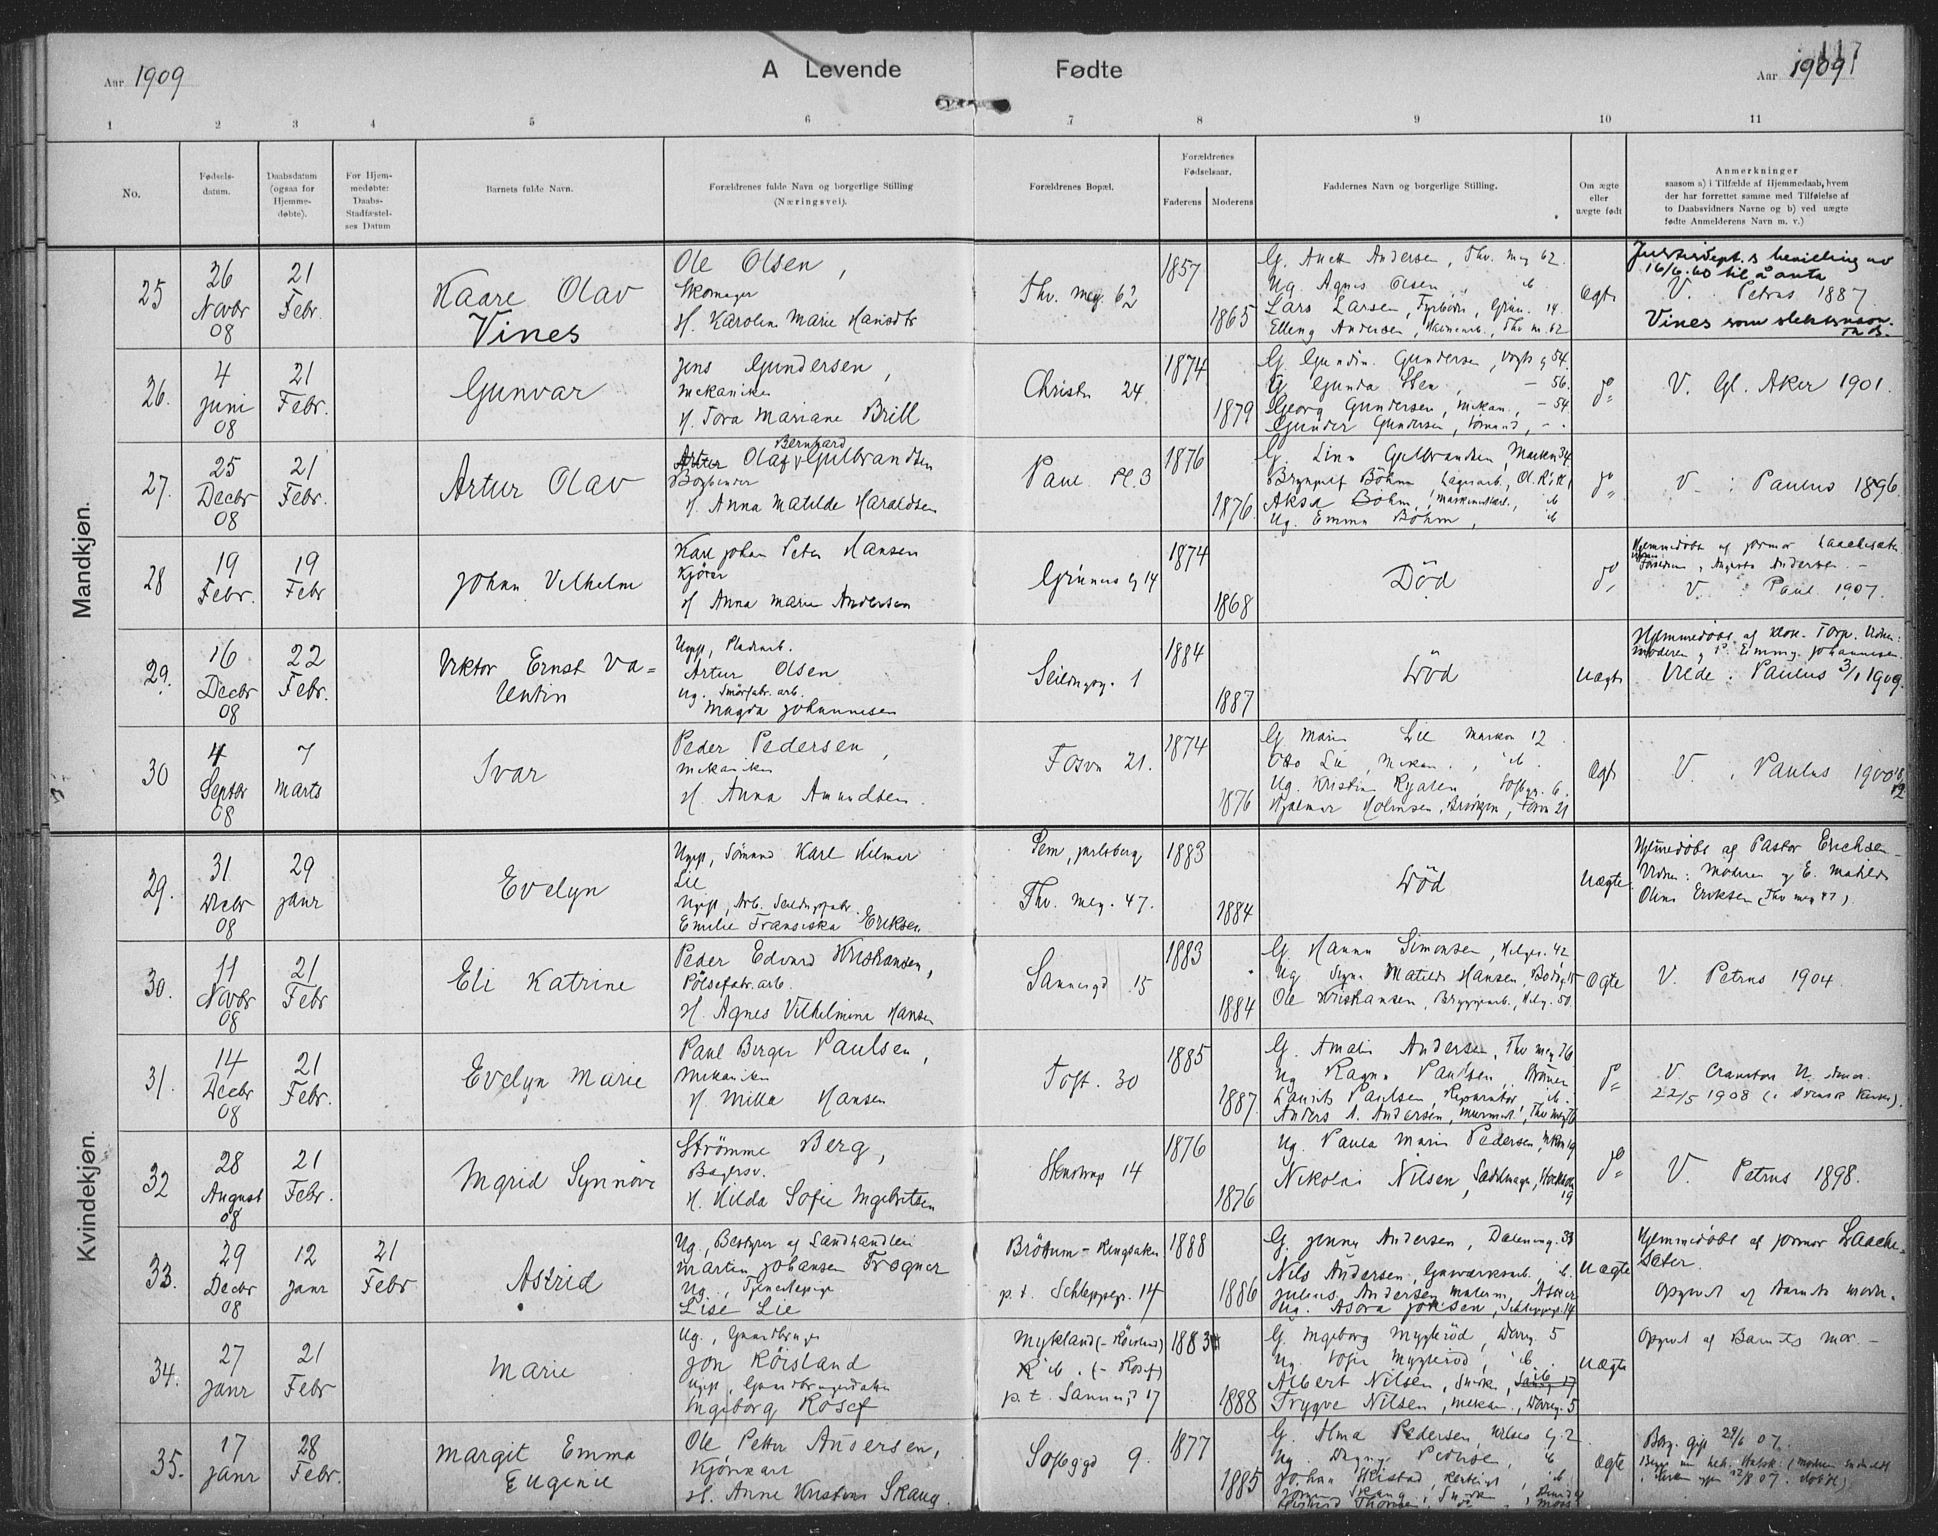 Aar 1909
A Levende Fødte
Aar 1909
117
1 2 3 4 5 6 7 8 9 10 11
No.
Fødsels-
datum.
Daabsdatum
(ogsaa for
Hjemme-
døbte).
For Hjem-
medøbte:
Daabs-
Stadfæstel-
ses Datum
Barnets fulde Navn.
Forældrenes fulde Navn og borgerlige Stilling
(Næringsvei).
Forældrenes Bopæl.
Forældrenes
Fødselsaar.
Faderens Moderens
Faddernes Navn og borgerlige Stilling.
Om ægte
eller
uægte født
Anmerkninger
saasom a) i Tilfælde af Hjemmedaab, hvem
der har forrettet samme med Tilføielse af
to Daabsvidners Navne og b) ved uægte
fødte Anmelderens Navn m. v.)
Mandkjøn.
25
26 Novbr 08
21 Febr.
Kaare Olav
Vines
Ole Olsen,
Skomager
H. Karolin Marie Hansdtr
Thv. mey. 62
1857
1865
G. Anett Andersen, Thv. mey 62.
Ug. Agnes Olsen, ib
Lars Larsen, Fyrbøder, Grün. 14
Elling Andersen, Thv m. 62
Ægte
Justisdept.s bevilling av
16/6.60 til å anta
V. Petrus 1887
Vines som slektsnavn.
26.
4 Juni 08
21 Febr.
Gunvar
Jens Gundersen,
Mekaniker
H. Tora Mariane Brill
Christis 24
1874
1879
G. Gundersen, Vogts g 54.
G Gunda – 56.
Georg Gundersen, Mekan., – 54.
Gunder Gundersen, Sømand, – –
do
V. Gl. Aker 1901.
27.
25 Decbr 08
21 Febr.
Artur Olav
Bernhard
Artur Olaf Gulbrandsen
Bogbinder
H. Anna Matilde Haraldsen
Paul Pl. 3
1876
1876
G. Linn Gulbrandsen, Markv 34.
Böhm Lagerarb., Ol. R.
Aksa Böhm, ib
Ug. Emma Böhm, ib
do
V. : Paulus 1896.
28
19 Febr.
19 Febr
Johan Vilhelm
Karl Johan Peter Hansen
Kjører
H Anna Marie Andersen
Grüners g 14
1874
1868
Død
do
Hjemmedøbt af jormor Laachesæter
Augusta Andersen –
V. : Paul. 1907.
29.
16 Decbr 08
22 Febr.
Viktor Ernst Va=
lentin
Ugift, Pladearb.
Artur Olsen
Ug. Smørfabr. arb.
Magda Johannesen
Seildugsg. 1
1884
1887
Død
Uægte
Hjemmedøbt af klok. Torp. Vidner:
Moderen og P. Emmy Johannesen
Vilde : Paulus 3/1 1909.
30
4 Septbr 08
7 Marts
Ivar
Peder Pedersen,
Mekaniker
H. Anna Amundsen.
Fosvn 21.
1874
1876
G Marie Lie Markv 12
Otto Lie, Mekan., ib.
Ug. Kristine Sofieg. 6.
Hjalmar Holmsen, Fosvn 21
Ægte
V. : Paulus 1900
Kvindekjøn.
29.
31 Decbr 08
29 Janr
Evelyn
Ugift, Sømand Karl Hilmar
Lie
Ugift, Arb. Seildugsfabr.
Emilie Fransiska Eriksen
Sem, Jarlsberg
Thv. mey. 47.
1883
1884
Død
Uægte
Hjemmedøbt af Pastor Erichsen –
Vidner: Moderen og E. Matilde
Oline Eriksen (Thv mey 47).
30.
11 Novbr 08
21 Febr
Eli Katrine
Peder Edvard Kristiansen,
Pølsefabr. arb.
H. Agnes Vilhelmine Hansen
Sannergd 15
1883
1884
G. Hanna Simonsen, Helges. 42,
Ug Signe Matilde Hansen, Bodøg. 15
Ole Kristiansen, Bryggearb., Helg. 50.
Ægte
V. Petrus 1904.
31.
14 Decbr 08
21 Febr.
Evelyn Marie
Paul Birger Paulsen,
Mekaniker
H. Milla Hansen
Toft. 30
1885
1887
G. Amalie Andersen, Thv mey 76
Ug Ragna Paulsen,
Laurits Paulsen, Reparatør, ib.
Anders A. Andersen, Murmest., Thv mey 76
do
V Cranston N. Amer.
22/5 1908 (i svensk Kirke).
32
28 August 08
21 Febr.
Ingrid Synnöve
Strømme Berg,
Bagersv.
H. Hilda Sofie Ingebritsen
Stenstrups 14
1876
1876
Ug. Paula Marie Pedersen,
Nikolai Nilsen, Sadelmager, Stockholm
19
do
V. Petrus 1898.
33.
29 Decbr 08
12 Janr
21 Febr
Astrid
Ug., Bestyrer af Landhandleri
Martin Johansen Frogner
Ug., Tjenestepige
Lise Lie
Brøttum – Ringsaker
p.t. Schleppegr. 14
1888
1886
G. Jenny Andersen, Dalening. 33
Nils Andersen, Gasværksarb., ib.
Julius Andersen Maler, Asker
Ug. Asora Johnsen, Schleppegr. 14
Uægte
Hjemmedøbt af jormor Laache-
sæter.
Opgivet af Barnets moder.
34.
27 Janr
21 Febr
Marie
Ug., Gaardbruger
Jon Røisland
Ugift, Gaardbrugerdatter
Ingeborg Rosef
Mykland (– Røisland)
ib. (– Rosef)
p.t. Sannerg 17
1883
1888
G. Ingeborg Mykleröd, Dovreg. 5
Ug. Sofie Mykleröd, ib.
Albert Nilsen, Snek., ib
Trygve Nilsen, Mekan., Dovreg. 5
Uægte
Opgivet af Barnets mor. –
35.
17 Janr
28 Febr.
Margit Emma
Eugenie
Ole Petter Andersen,
Kjørekarl
H. Anne Kristine Skaug.
Sofiegd 9.
1877
1885
G. Alma Pedersen, Nilses g. 2
Ug. Dagny Pedersen, ib
Johan
Ægte
Borg. gift 29/6 07.